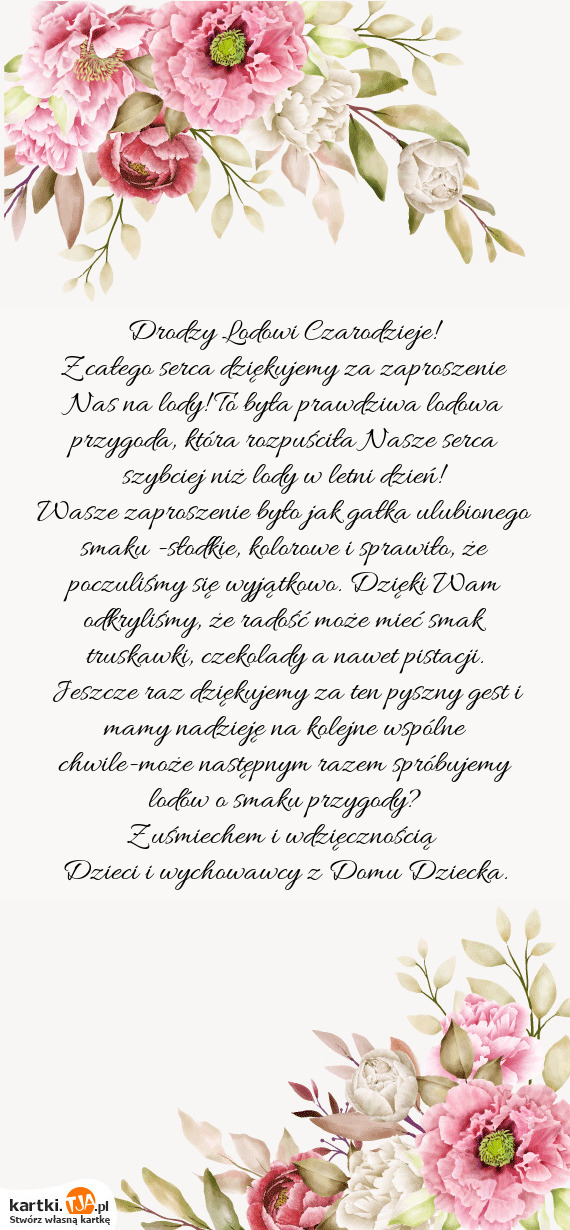 Drodzy Lodowi Czarodzieje!
Z całego serca dziękujemy za zaproszenie
Nas na lody! To była prawdziwa lodowa
przygoda, która rozpuściła Nasze serca
szybciej niż lody w letni dzień!
Wasze zaproszenie było jak gałka ulubionego
smaku -słodkie, kolorowe i sprawiło, że
poczuliśmy się wyjątkowo. Dzięki Wam
odkryliśmy, że radość może mieć smak
truskawki, czekolady a nawet pistacji.
Jeszcze raz dziękujemy za ten pyszny gest i
mamy nadzieję na kolejne wspólne
chwile-może następnym razem spróbujemy
lodów o smaku przygody?
Z uśmiechem i wdzięcznością
Dzieci i wychowawcy z Domu Dziecka.
kartki.TJA.pl
Stwórz własną kartkę